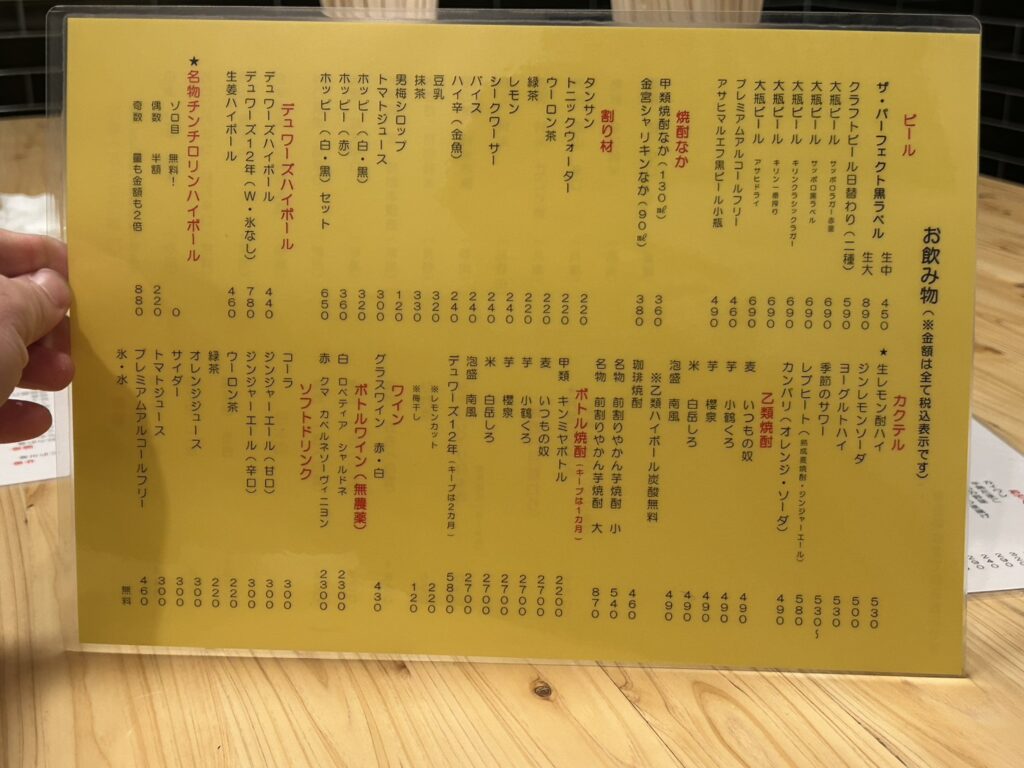 お飲み物（※金額は全て税込表示です）
ビール
ザ・パーフェクト黒ラベル 生中 450
生大 890
クラフトビール日替わり（二種） 590
大瓶ビール サッポロラガー赤星 690
大瓶ビール サッポロ黒ラベル 690
大瓶ビール キリンクラシックラガー 690
大瓶ビール キリン一番搾り 690
大瓶ビール アサヒドライ 690
プレミアムアルコールフリー 460
アサヒマルエフ黒ビール小瓶 490
焼酎なか
甲類焼酎なか（130㎖） 360
金宮シャリキンなか（90㎖） 380
割り材
タンサン 220
トニックウォーター 220
ウーロン茶 220
緑茶 220
レモン 240
シークワーサー 240
バイス 240
ハイ辛（金魚） 240
豆乳 320
抹茶 330
男梅シロップ 120
トマトジュース 300
ホッピー（白・黒） 320
ホッピー（赤） 360
ホッピー（白・黒）セット 650
デュワーズハイボール
デュワーズハイボール 440
デュワーズ12年（W・氷なし） 780
生姜ハイボール 460
★名物チンチロリンハイボール
ゾロ目 無料！ 0
偶数 半額 220
奇数 量も金額も2倍 880
カクテル
★生レモン酎ハイ 530
ジンレモンソーダ 500
ヨーグルトハイ 530
季節のサワー 530〜
レブピート（熟成麦焼酎・ジンジャーエール） 580
カンパリ（オレンジ・ソーダ） 490
乙類焼酎
麦 いつもの奴 490
芋 小鶴くろ 490
芋 櫻泉 490
米 白岳しろ 490
泡盛 南風 490
※乙類ハイボール炭酸無料
珈琲焼酎 460
名物 前割りやかん芋焼酎 小 540
名物 前割りやかん芋焼酎 大 870
ボトル焼酎（キープは1カ月）
甲類 キンミヤボトル 2200
麦 いつもの奴 2700
芋 小鶴くろ 2700
芋 櫻泉 2700
米 白岳しろ 2700
泡盛 南風 2700
デュワーズ12年（キープは2カ月） 5800
※レモンカット 220
※梅干し 120
ワイン
グラスワイン 赤・白 430
ボトルワイン（無農薬）
白 ロペティア シャルドネ 2300
赤 クマ カベルネソーヴィニヨン 2300
ソフトドリンク
コーラ 300
ジンジャーエール（甘口） 300
ジンジャーエール（辛口） 300
ウーロン茶 220
緑茶 220
オレンジジュース 300
サイダー 300
トマトジュース 300
プレミアムアルコールフリー 460
氷・水 無料